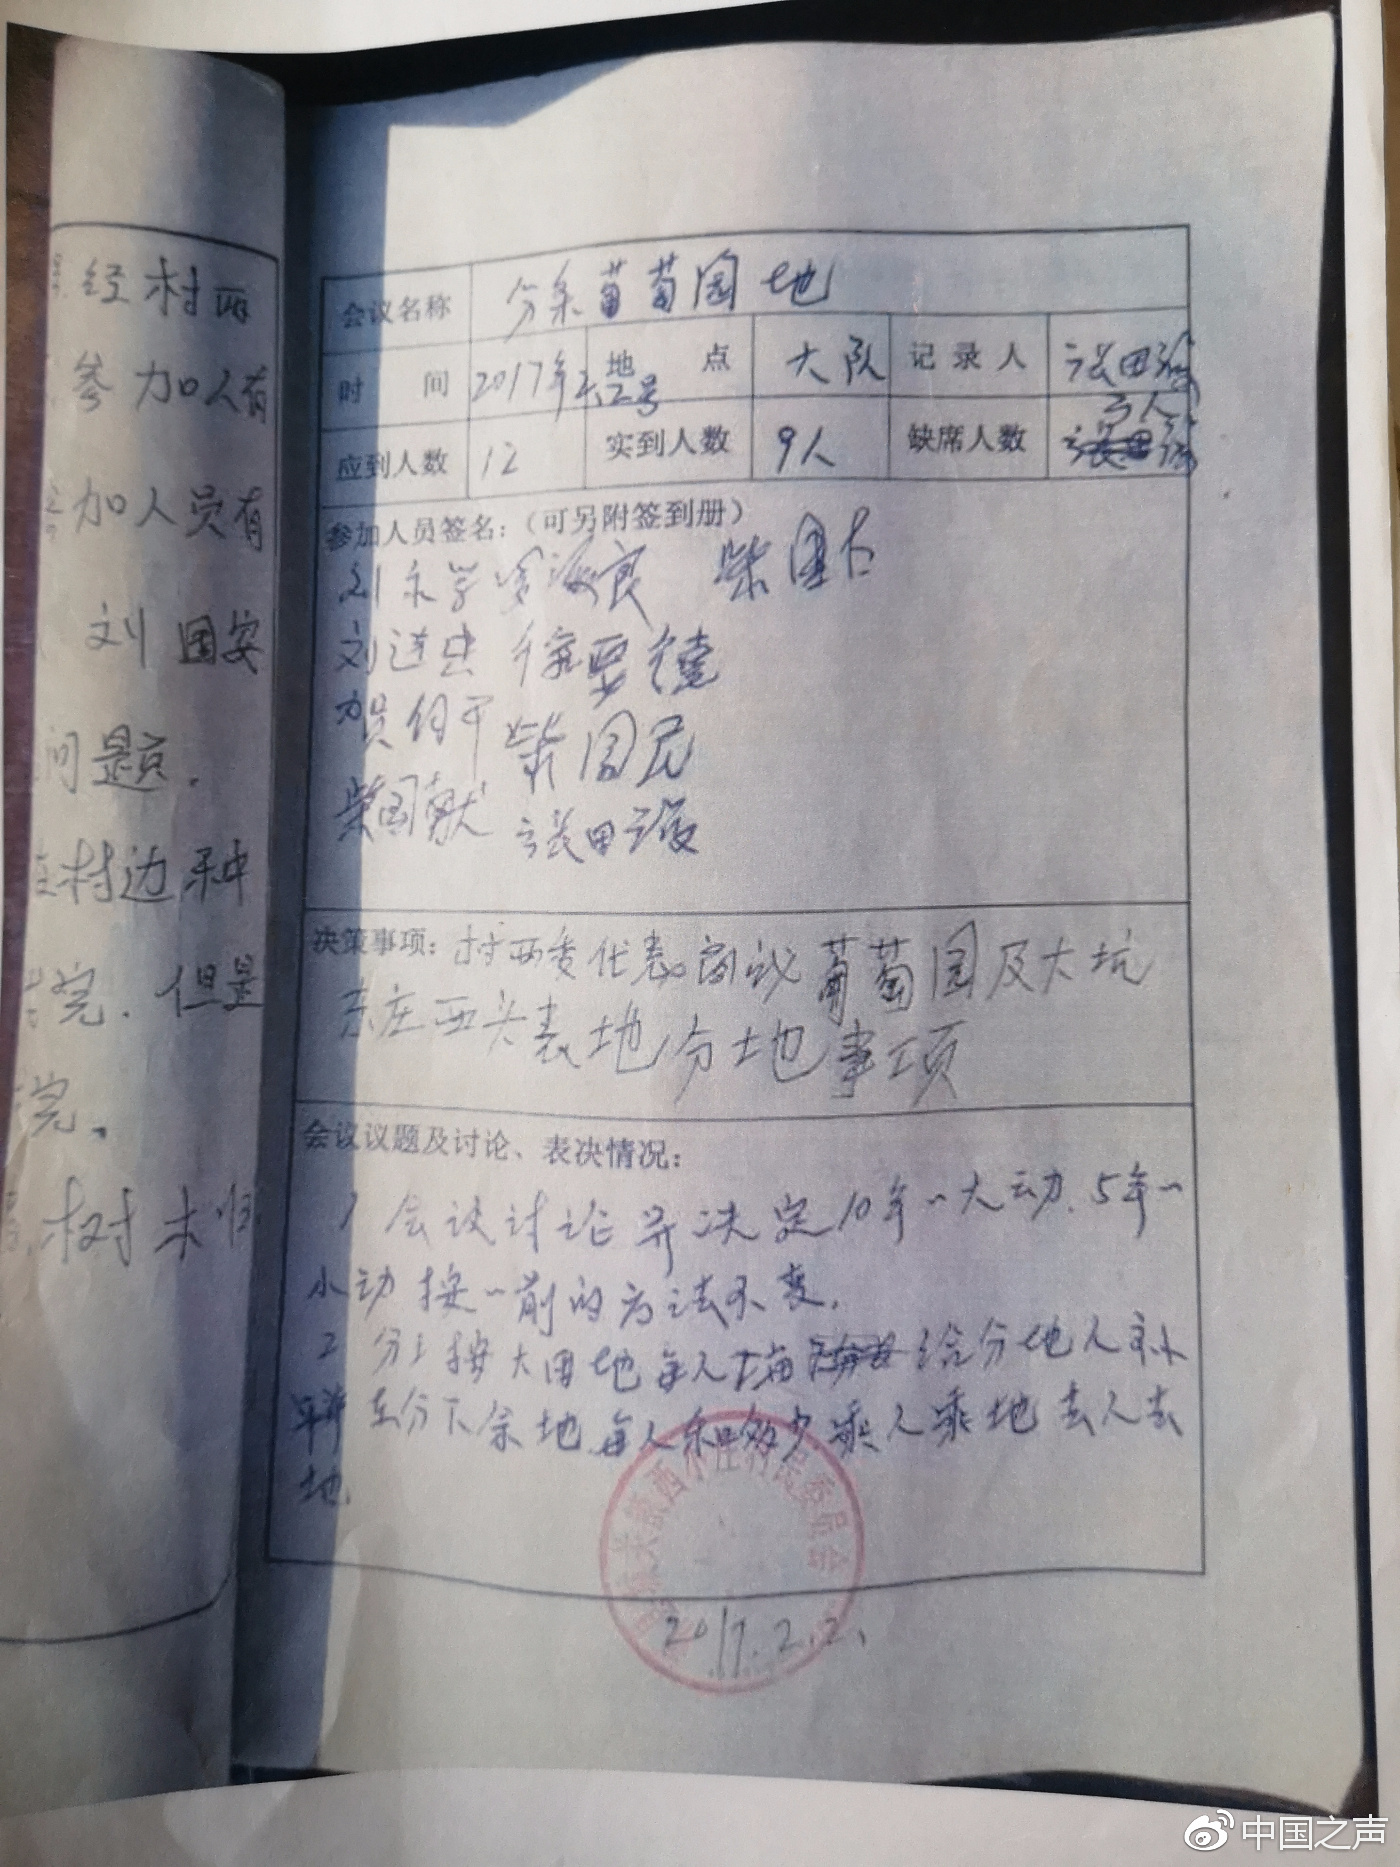 经村两
参加人有
加人员有
刘国安
问题.
村边种
完.但是
完.
树木归
会议名称 分东葡萄园地
时 间 2017年2.2号 地 点 大队 记录人 张田
应到人数 12 实到人数 9人 缺席人数 3人
参加人员签名:(可另附签到册)
刘永学 海良 柴国占
刘进忠 德
贺付平 柴国民
柴国献 张田
决策事项: 村两委代表商议葡萄园及大坑
东庄西头表地分地事项
会议议题及讨论、表决情况:
1 会议讨论并决定10年一大动.5年一
小动按一前的方法不变.
2 分 按大田地每人 给分地人
在分下余地.每人和多少乘人乘地去人去
地.
西小庄村民委员会
2017.2.2.
中国之声